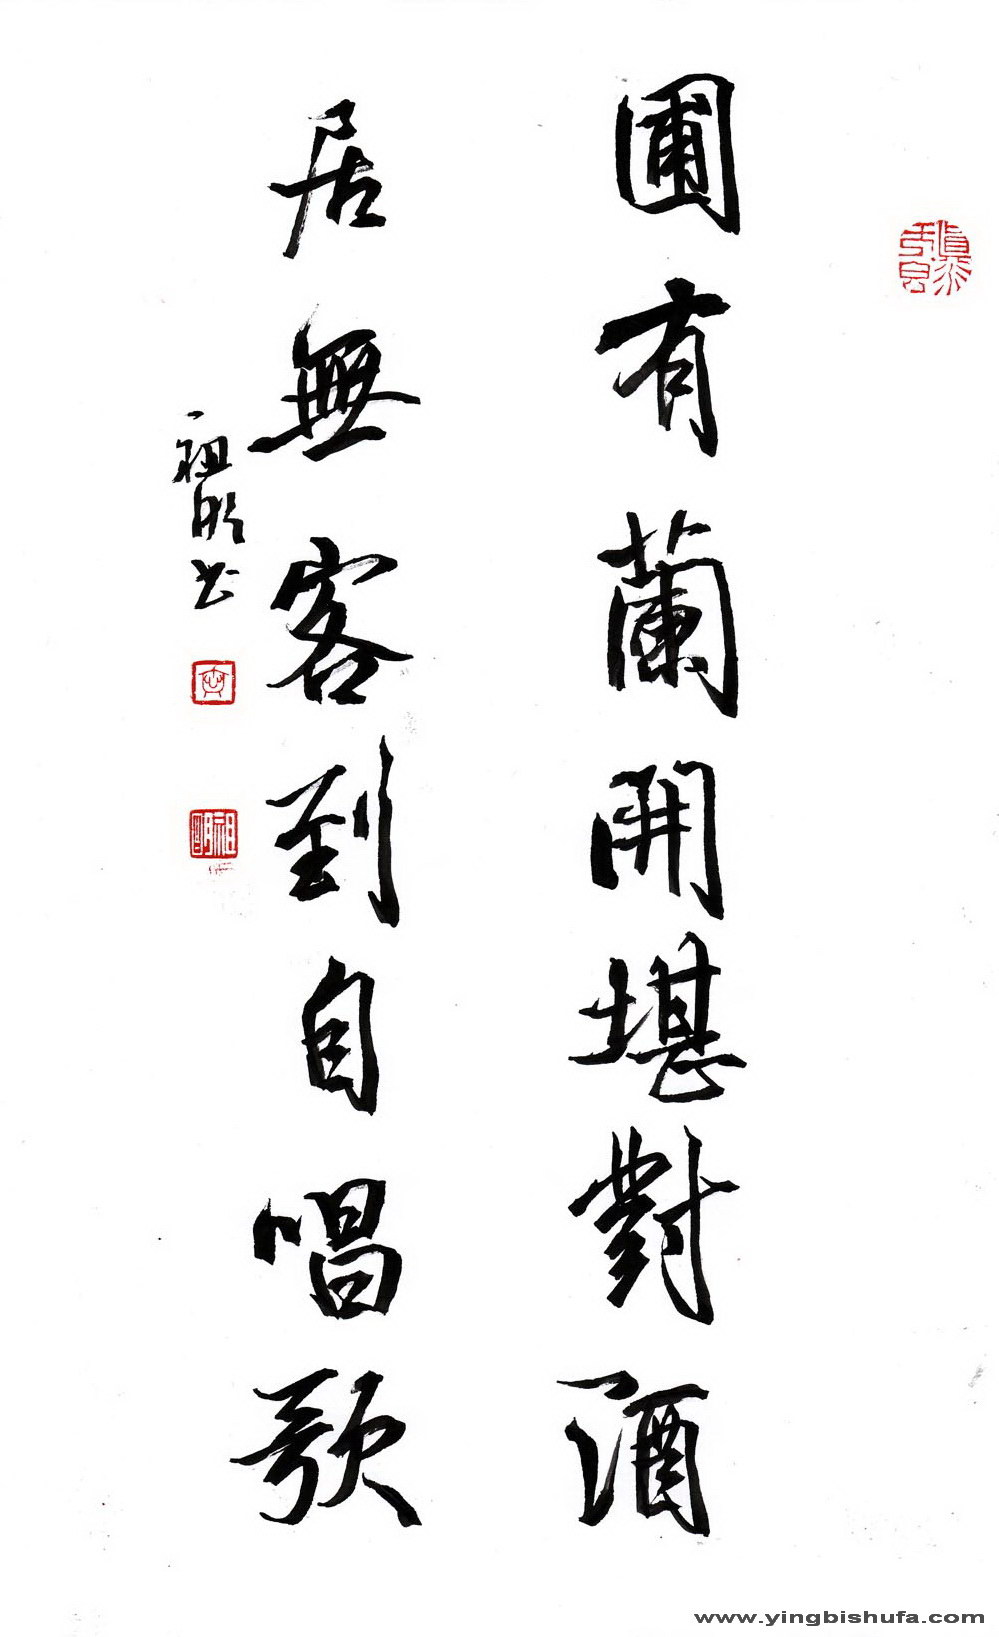 圃有蘭開堪對酒
居無客到自唱歌
祖明书
www.yingbishufa.com